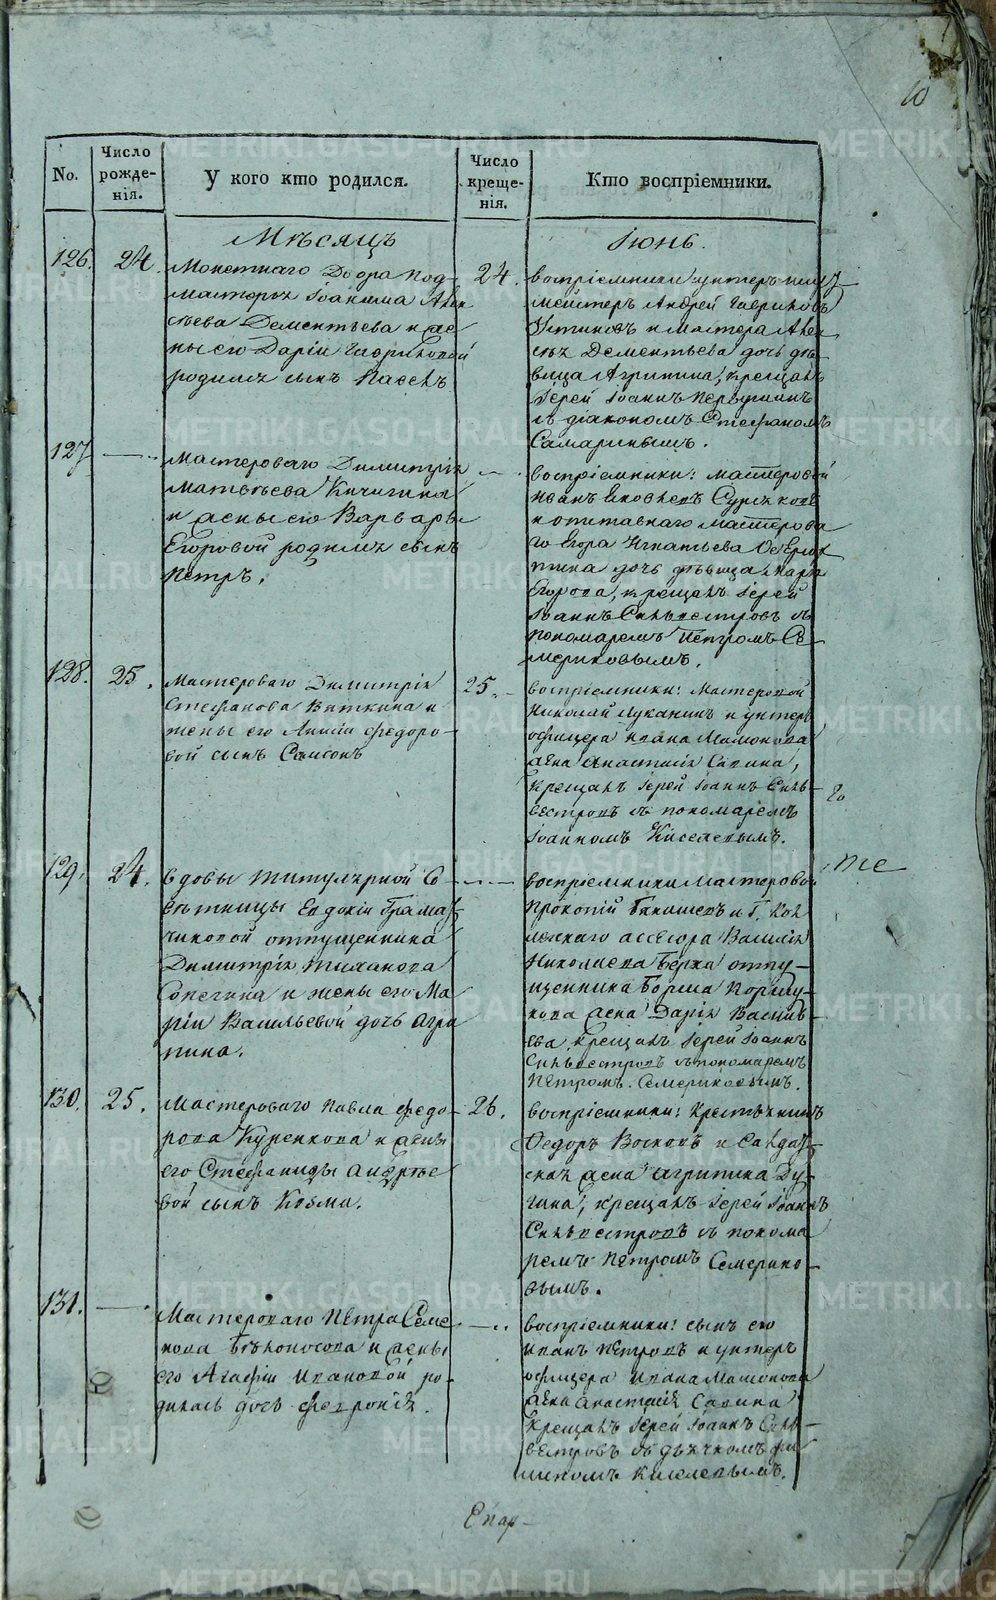 10
No.
Число рожденія.
У кого кто родился.
Число крещенія.
Кто воспріемники.
Мѣсяцъ
Іюнь.
126.
24.
Монетнаго Двора под-
мастерья Іоакима Алек
сѣева Дементьева и же-
ны его Даріи Гавриловой
родился сынъ
24.
воспріемники унтеръ-шихт
мейстеръ Андрей Гавриловъ
и мастера Алек
сѣя Дементьева дочь дѣ-
вица Агрипина, крещалъ
Іерей Іоаннъ
съ діакономъ Стефаномъ
Самаринымъ.
127
Мастероваго Димитрія
Матвѣева Кичигина
и жены его Варвары
Егоровой родился сынъ
Петръ.
воспріемники: мастеровой
Иванъ Яковлевъ
и отставнаго мастерова
го Егора Игнатьева
дочь дѣвица Марья
Егорова, крещалъ Іерей
Іоаннъ Сильвестровъ съ
пономаремъ Петромъ Се-
мериковымъ.
128.
25.
Мастероваго Димитрія
Стефанова Вяткина и
жены его Федоро-
вой сынъ Самсонъ
25.
воспріемники: Мастеровой
Николай Луканинъ и унтеръ
офицера Ивана Мамонова
жена Анастасія Савина,
крещалъ Іерей Іоаннъ Силь-
вестровъ съ пономаремъ
Іоанномъ Киселевымъ.
129.
24.
вдовы титулярной Со-
вѣтницы Евдокіи Грамат-
чиковой отпущенника
Димитрія
и жены его Ма
ріи Васильевой дочь Агри
пина.
воспріемники Мастеровой
Прокопій и Г. Кол
лежскаго ассесора Василія
Николаева Берха отпу-
щенника
жена Дарія Василь-
ева крещалъ Іерей Іоаннъ
Сильвестровъ съ пономаремъ
Петромъ Семериковымъ.
130.
25.
Мастероваго Павла Федо-
рова Куренкова и жены
его Стефаниды Андрѣе
вой сынъ Козма.
26.
воспріемники: Крестьянинъ
Федоръ и Салдат-
ская жена Агрипина
крещалъ Іерей Іоаннъ
Сильвестровъ съ понома
ремъ Петромъ Семерико-
вымъ.
131.
Мастероваго Петра Семе
нова Бѣлоносова и жены
его Агафіи Ивановой ро-
дилась дочь Феврονія.
воспріемники: сынъ его
Иванъ Петровъ и унтеръ
офицера Ивана Мамонова
жена Анастасія Савина
крещалъ Іерей Іоаннъ Силь-
вестровъ съ дьячкомъ Фи
липомъ Киселевымъ.
Епар-
METRIKI.GASO-URAL.RU